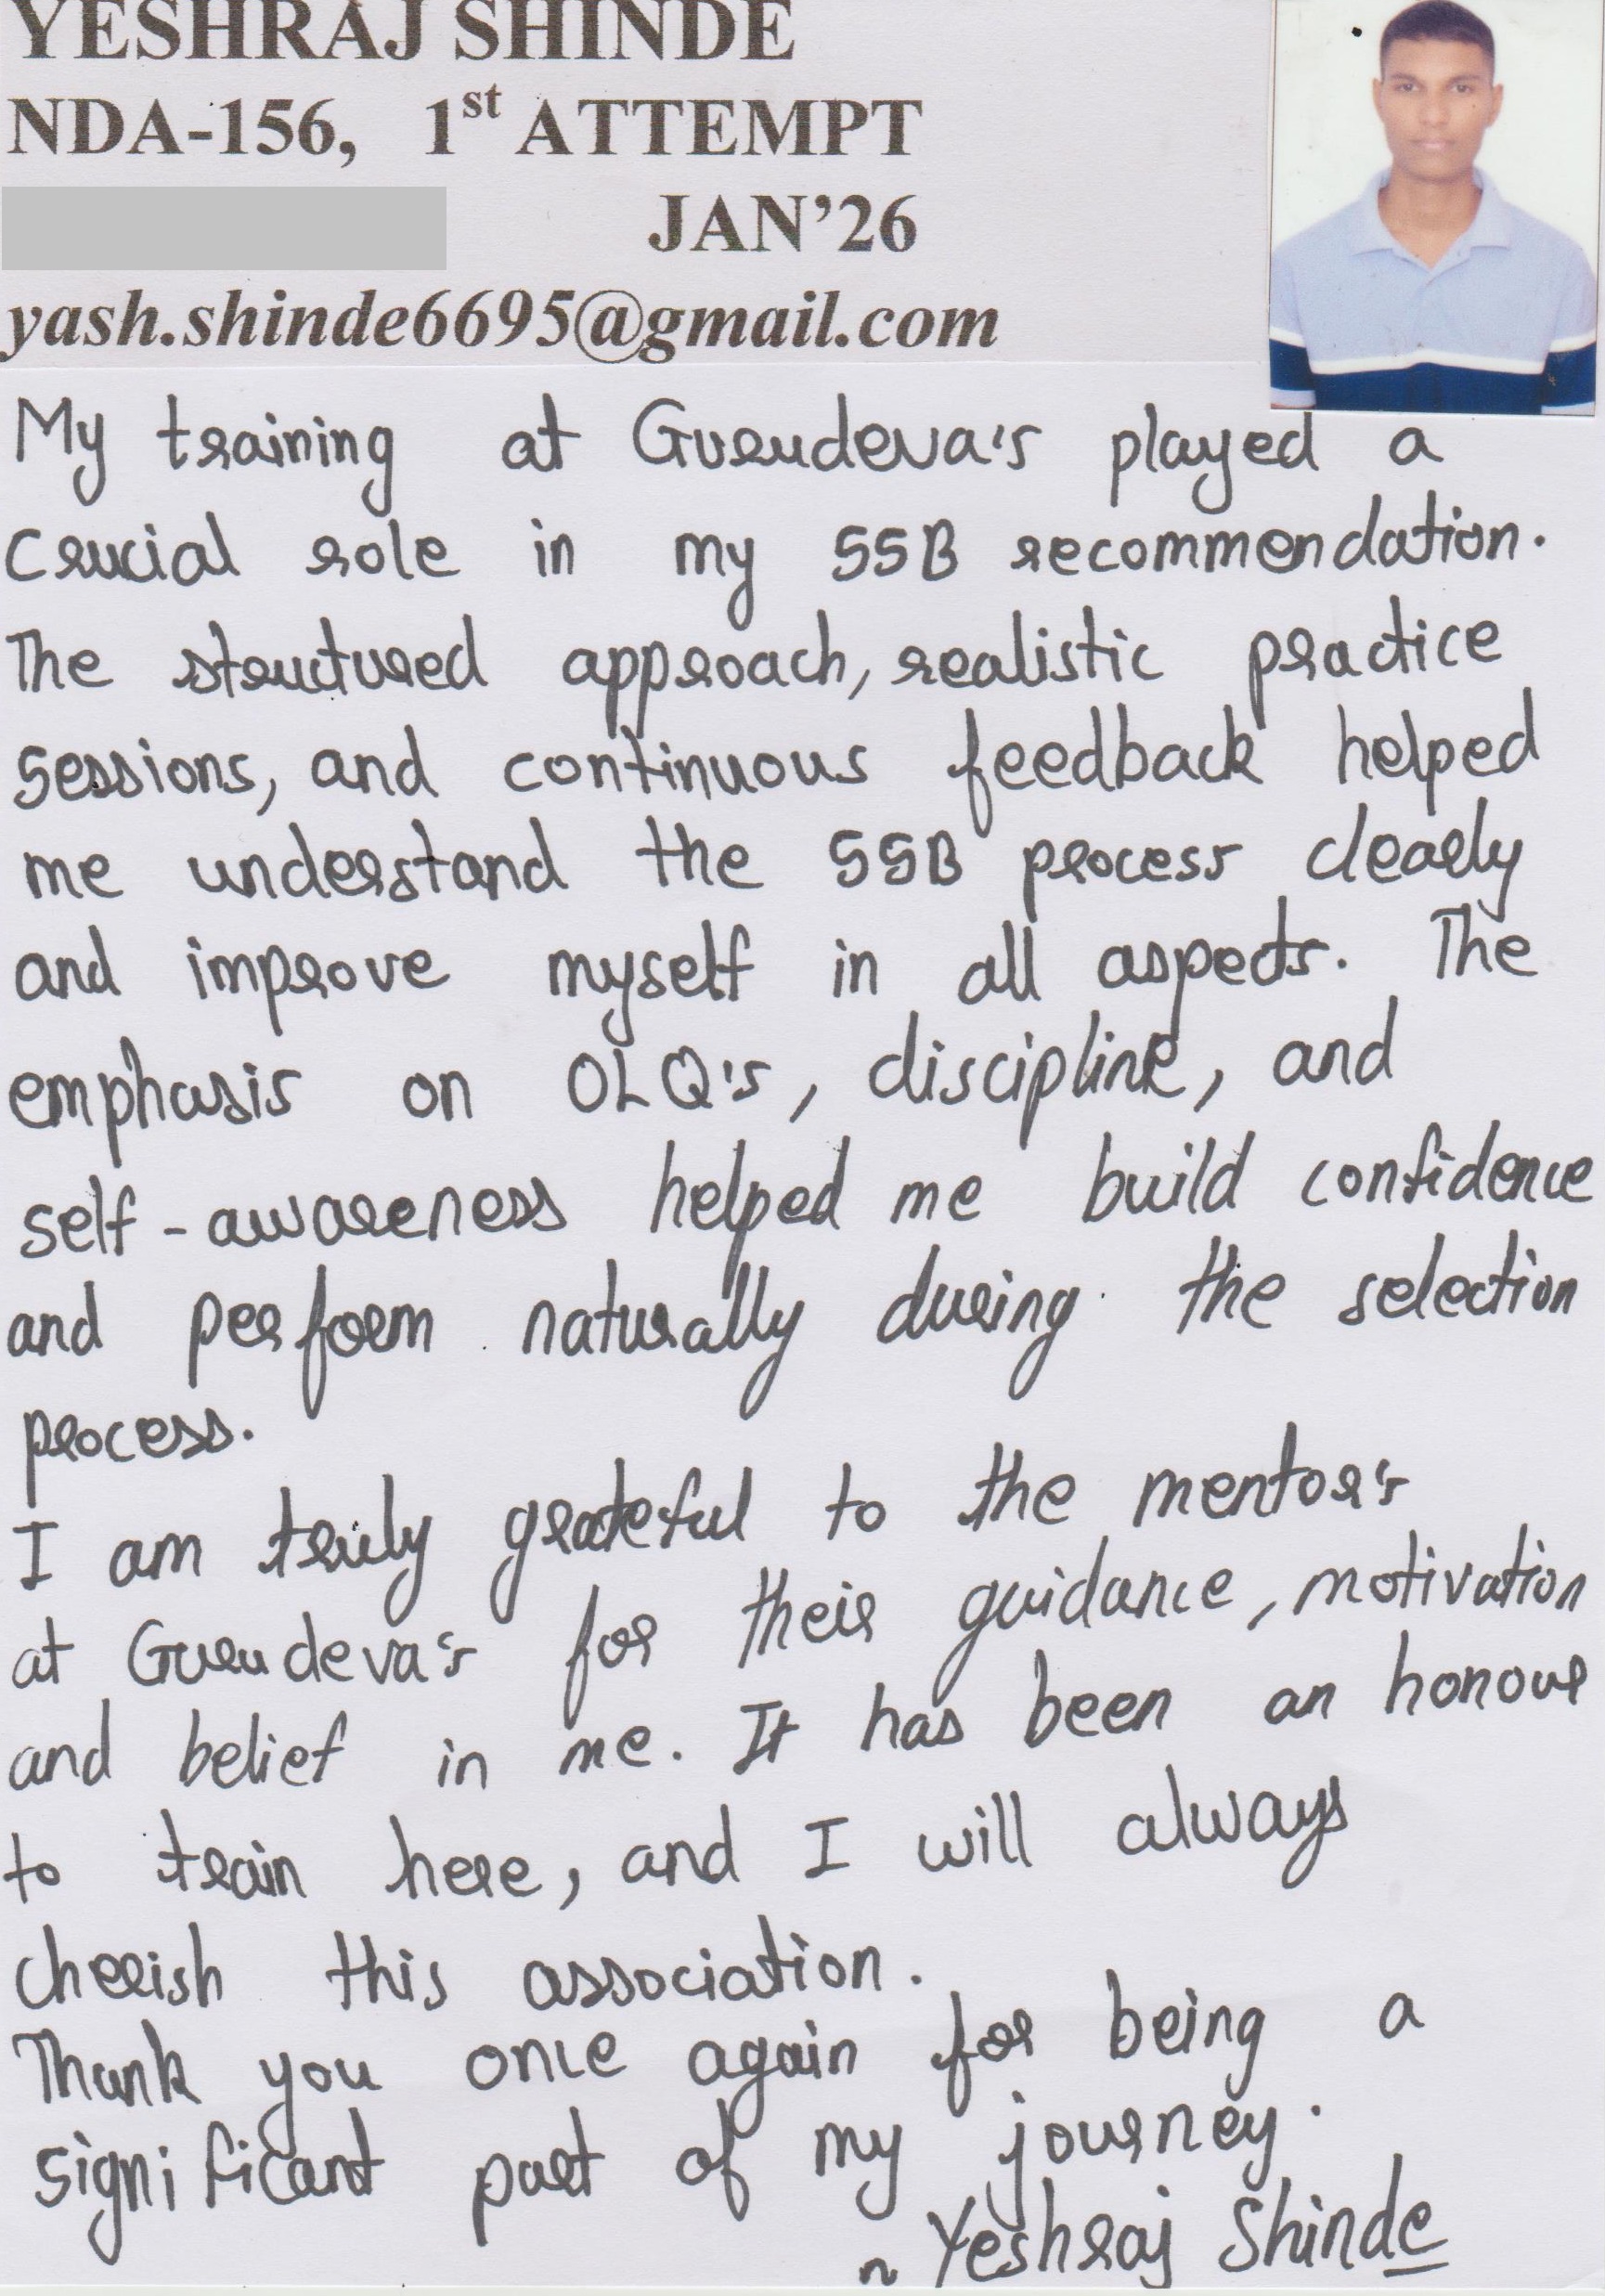 YESHRAJ SHINDE
NDA-156, 1st ATTEMPT
JAN'26
yash.shinde6695@gmail.com
My training at Gurudeva's played a
crucial role in my SSB recommendation.
The structured approach, realistic practice
sessions, and continuous feedback helped
me understand the SSB process clearly
and improve myself in all aspects. The
emphasis on OLQ's, discipline, and
self-awareness helped me build confidence
and perform naturally during the selection
process.
I am truly grateful to the mentor's
at Gurudeva's for their guidance, motivation
and belief in me. It has been an honour
to train here, and I will always
cherish this association.
Thank you once again for being a
significant part of my journey.
~ Yeshraj Shinde